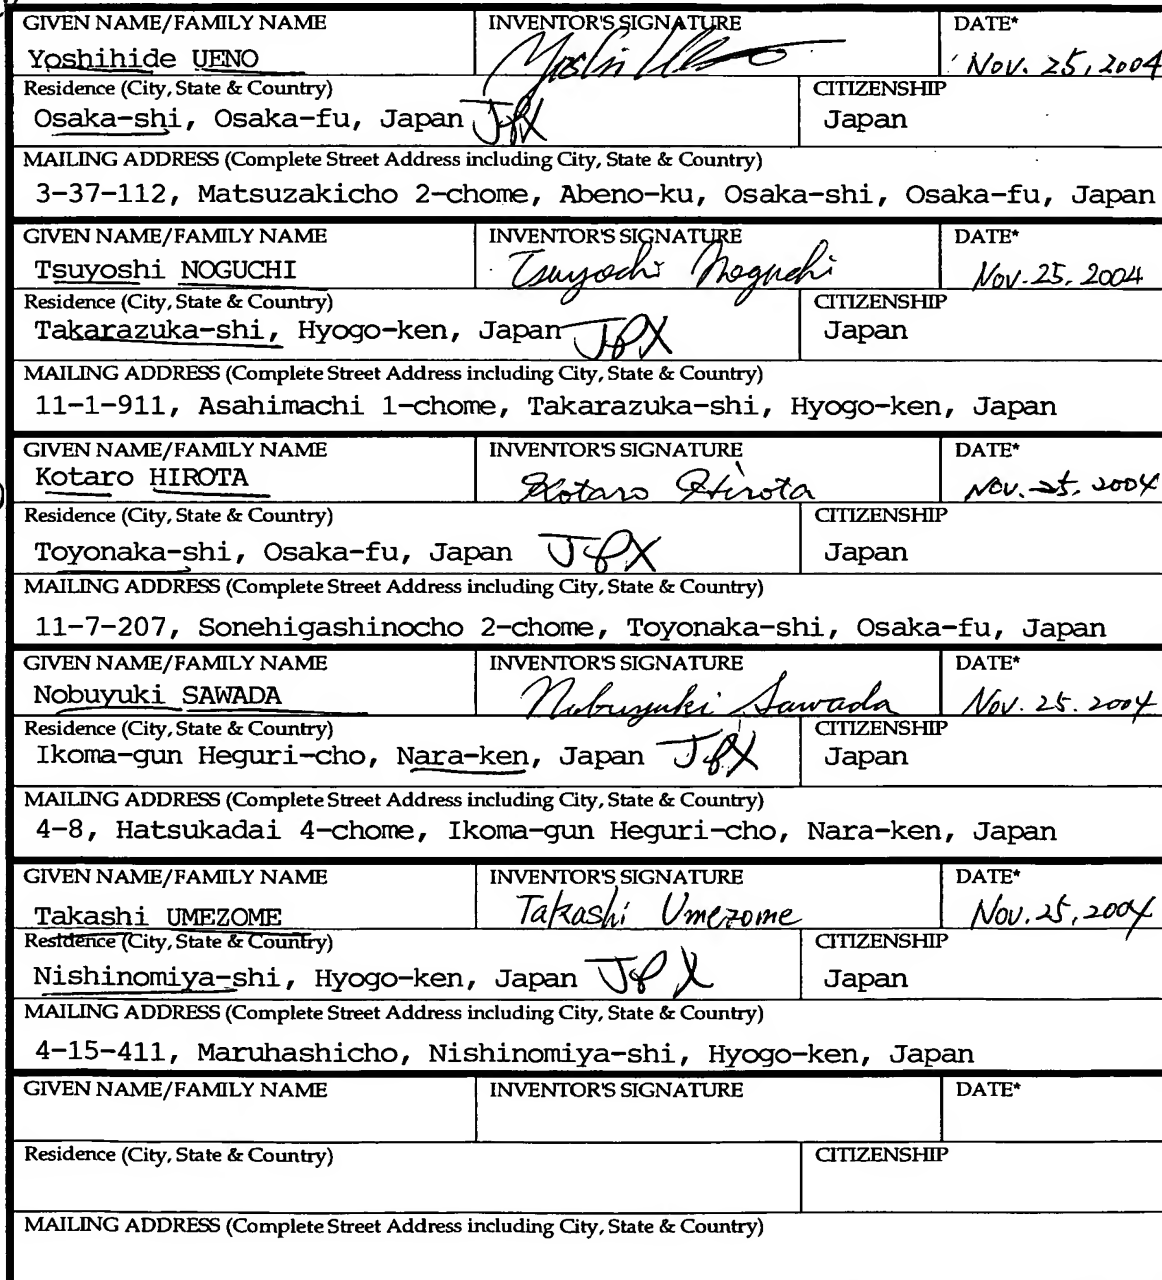 GIVEN NAME/FAMILY NAME INVENTOR'S SIGNATURE DATE*
Yoshihide UENO Yoshi Ueno Nov. 25, 2004
Residence (City, State & Country) CITIZENSHIP
Osaka-shi, Osaka-fu, Japan JPX Japan
MAILING ADDRESS (Complete Street Address including City, State & Country)
3-37-112, Matsuzakicho 2-chome, Abeno-ku, Osaka-shi, Osaka-fu, Japan
GIVEN NAME/FAMILY NAME INVENTOR'S SIGNATURE DATE*
Tsuyoshi NOGUCHI Tsuyoshi Noguchi Nov. 25, 2004
Residence (City, State & Country) CITIZENSHIP
Takarazuka-shi, Hyogo-ken, Japan JPX Japan
MAILING ADDRESS (Complete Street Address including City, State & Country)
11-1-911, Asahimachi 1-chome, Takarazuka-shi, Hyogo-ken, Japan
GIVEN NAME/FAMILY NAME INVENTOR'S SIGNATURE DATE*
Kotaro HIROTA Kotaro Hirota Nov. 25, 2004
Residence (City, State & Country) CITIZENSHIP
Toyonaka-shi, Osaka-fu, Japan JPX Japan
MAILING ADDRESS (Complete Street Address including City, State & Country)
11-7-207, Sonehigashinocho 2-chome, Toyonaka-shi, Osaka-fu, Japan
GIVEN NAME/FAMILY NAME INVENTOR'S SIGNATURE DATE*
Nobuyuki SAWADA Nobuyuki Sawada Nov. 25. 2004
Residence (City, State & Country) CITIZENSHIP
Ikoma-gun Heguri-cho, Nara-ken, Japan JPX Japan
MAILING ADDRESS (Complete Street Address including City, State & Country)
4-8, Hatsukadai 4-chome, Ikoma-gun Heguri-cho, Nara-ken, Japan
GIVEN NAME/FAMILY NAME INVENTOR'S SIGNATURE DATE*
Takashi UMEZOME Takashi Umezome Nov. 25, 2004
Residence (City, State & Country) CITIZENSHIP
Nishinomiya-shi, Hyogo-ken, Japan JPX Japan
MAILING ADDRESS (Complete Street Address including City, State & Country)
4-15-411, Maruhashicho, Nishinomiya-shi, Hyogo-ken, Japan
GIVEN NAME/FAMILY NAME INVENTOR'S SIGNATURE DATE*
Residence (City, State & Country) CITIZENSHIP
MAILING ADDRESS (Complete Street Address including City, State & Country)